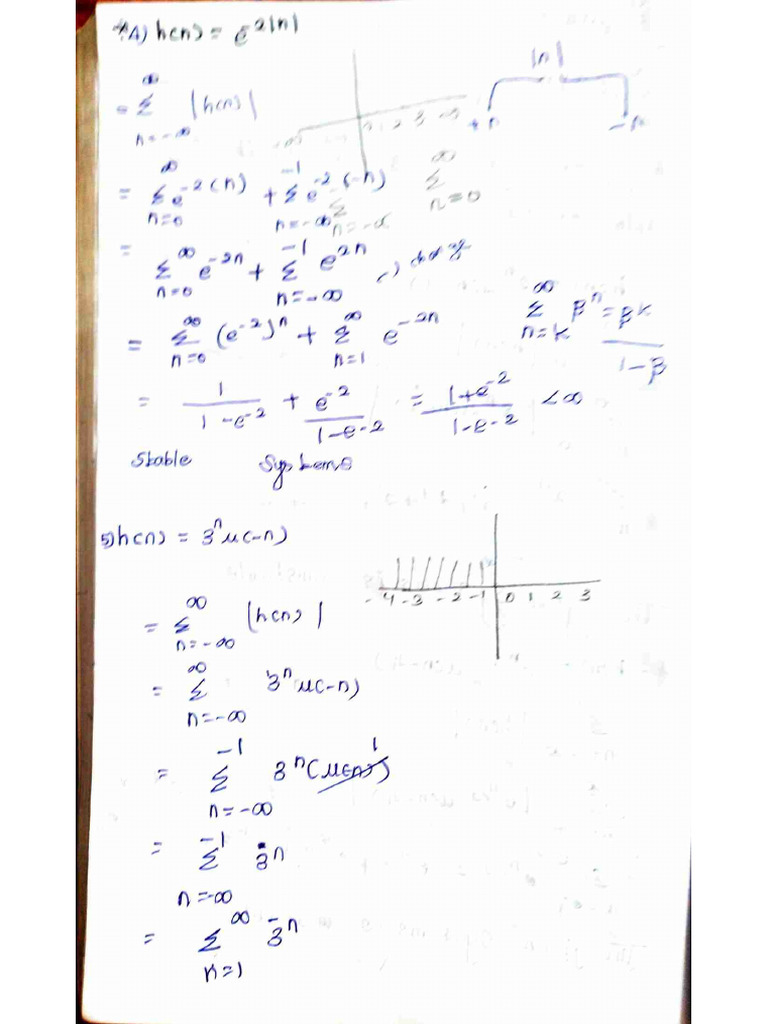 4) h(n) = e^-2|n|
|n|
+n -n
= ∞ Σ n=-∞ |h(n)|
= ∞ Σ n=0 e^-2(n) + -1 Σ n=-∞ e^-2(-n)
∞ Σ n=0
= ∞ Σ n=0 e^-2n + -1 Σ n=-∞ e^2n
= ∞ Σ n=0 (e^-2)^n + ∞ Σ n=1 e^-2n
∞ Σ n=k β^n = βk / 1-β
= 1 / 1-e^-2 + e^-2 / 1-e-2 = 1+e^-2 / 1-e-2 < ∞
Stable Systems
5) h(n) = 3^n u(-n)
-4 -3 -2 -1 0 1 2 3
= ∞ Σ n=-∞ |h(n)|
= ∞ Σ n=-∞ 3^n u(-n)
= -1 Σ n=-∞ 3^n (u(-n)) 1
= -1 Σ n=-∞ 3^n
= ∞ Σ n=1 3^-n